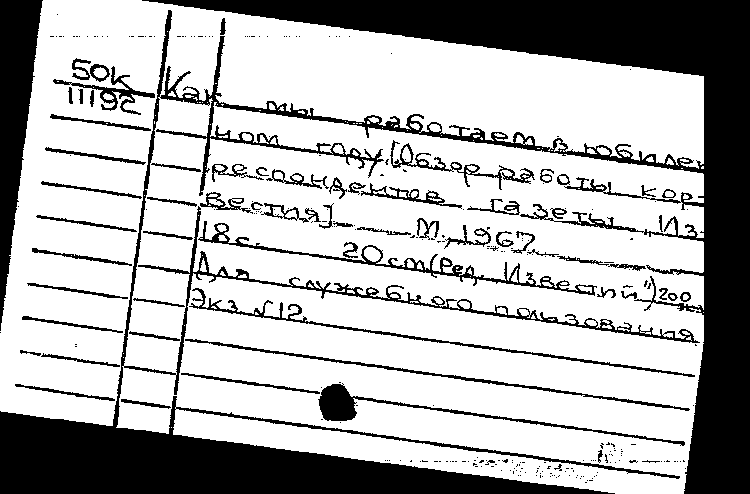 50К
11192
Как мы работаем в юбилей
ном году. [Обзор работы кор-
респондентов газеты „Из-
вестия] М., 1967
18 с. 20 cm (Ред. „Известий") 200
Для служебного пользования
Экз. №12.